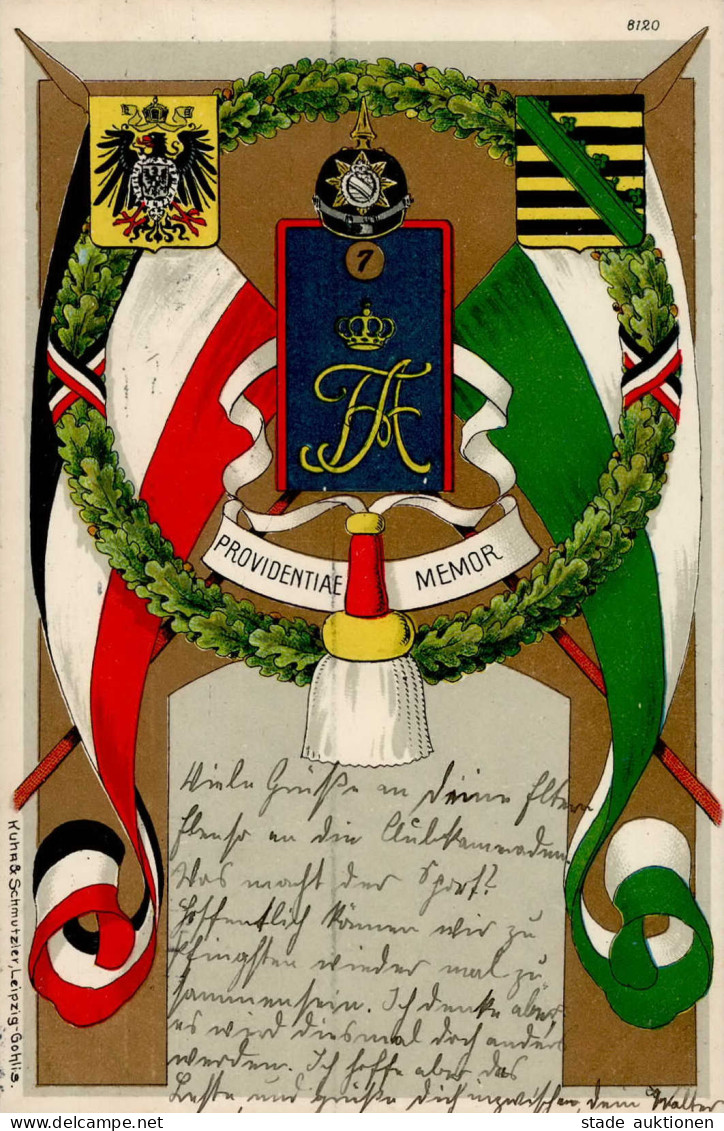 8120
7
FA
PROVIDENTIAE MEMOR
Viele Grüße an deine Eltern
Ebenso an die Clubkameraden
Was macht der Sport?
Hoffentlich können wir zu
Pfingsten wieder mal zu
sammensein. Ich denke aber
es wird diesmal doch anders
werden. Ich hoffe aber das
Beste und grüße dich inzwischen, dein Walter
Kuhn & Schmutzler, Leipzig-Gohlis.
© www.delcampe.net
stade auktionen